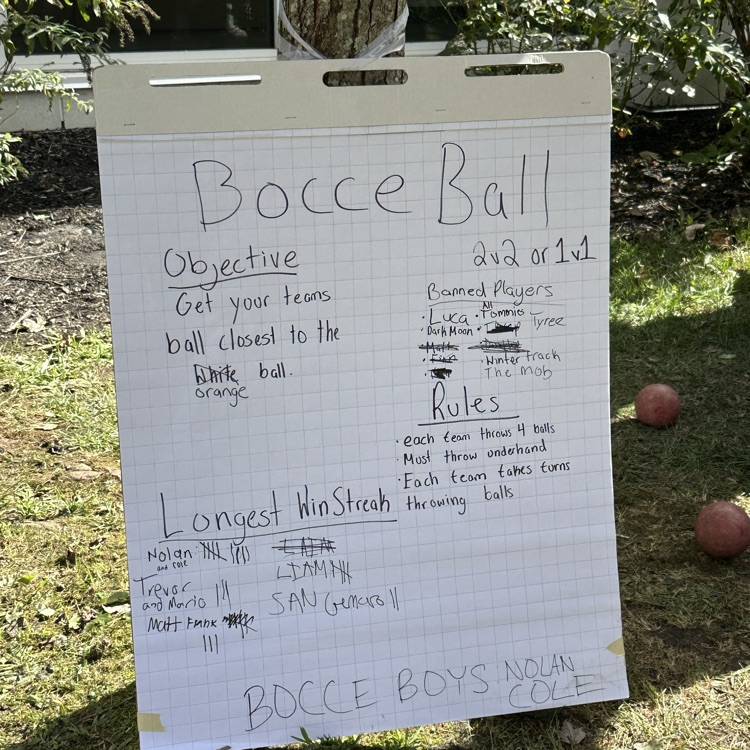 Bocce Ball
2v2 or 1v1
Objective
Get your teams
ball closest to the
White ball.
orange
Banned Players
· Luca · All Tommies
· Dark Moon · Tyree
· Winter track
The Mob
Rules
· each team throws 4 balls
· Must throw underhand
· Each team takes turns
throwing balls
Longest Win Streak
Nolan
and cole
Trevor
and Mario |||
Matt Frank
|||
LIAM
SAN Gennaro ||
BOCCE BOYS NOLAN
COLE